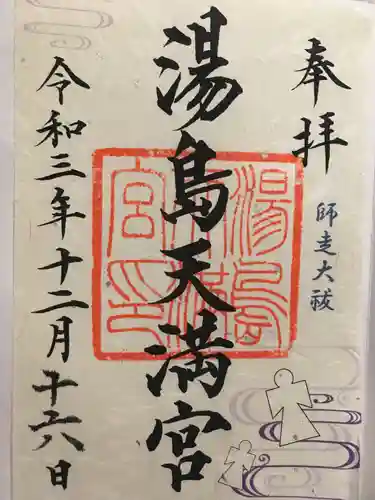 奉拝
師走大祓
湯島天満宮
湯島天満宮印
令和三年十二月十六日